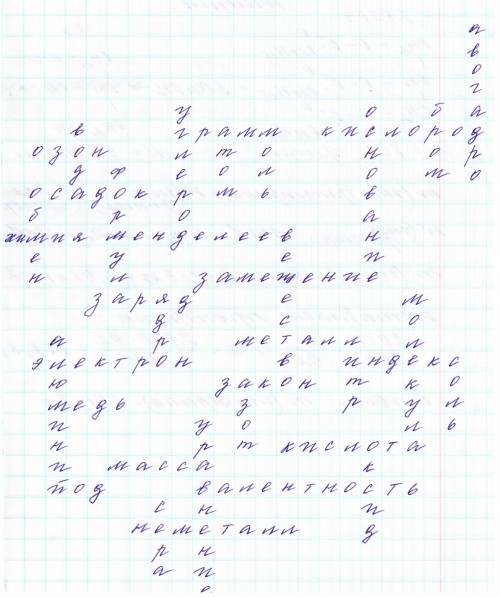 а
в
о
г
у о б а
в грамм кислород
озон л т о н о р
д ф е о л о м о
осадок р м ь в
б р о а
химия менделеев н
е у е и
н л замещение
заряд е м
д с о
а р металл л
электрон в индекс
ю закон т к о
медь з р у л
и у о л ь
н р т кислота
и масса к
йод валентность
с н и
неметалл д
р н
а и
е